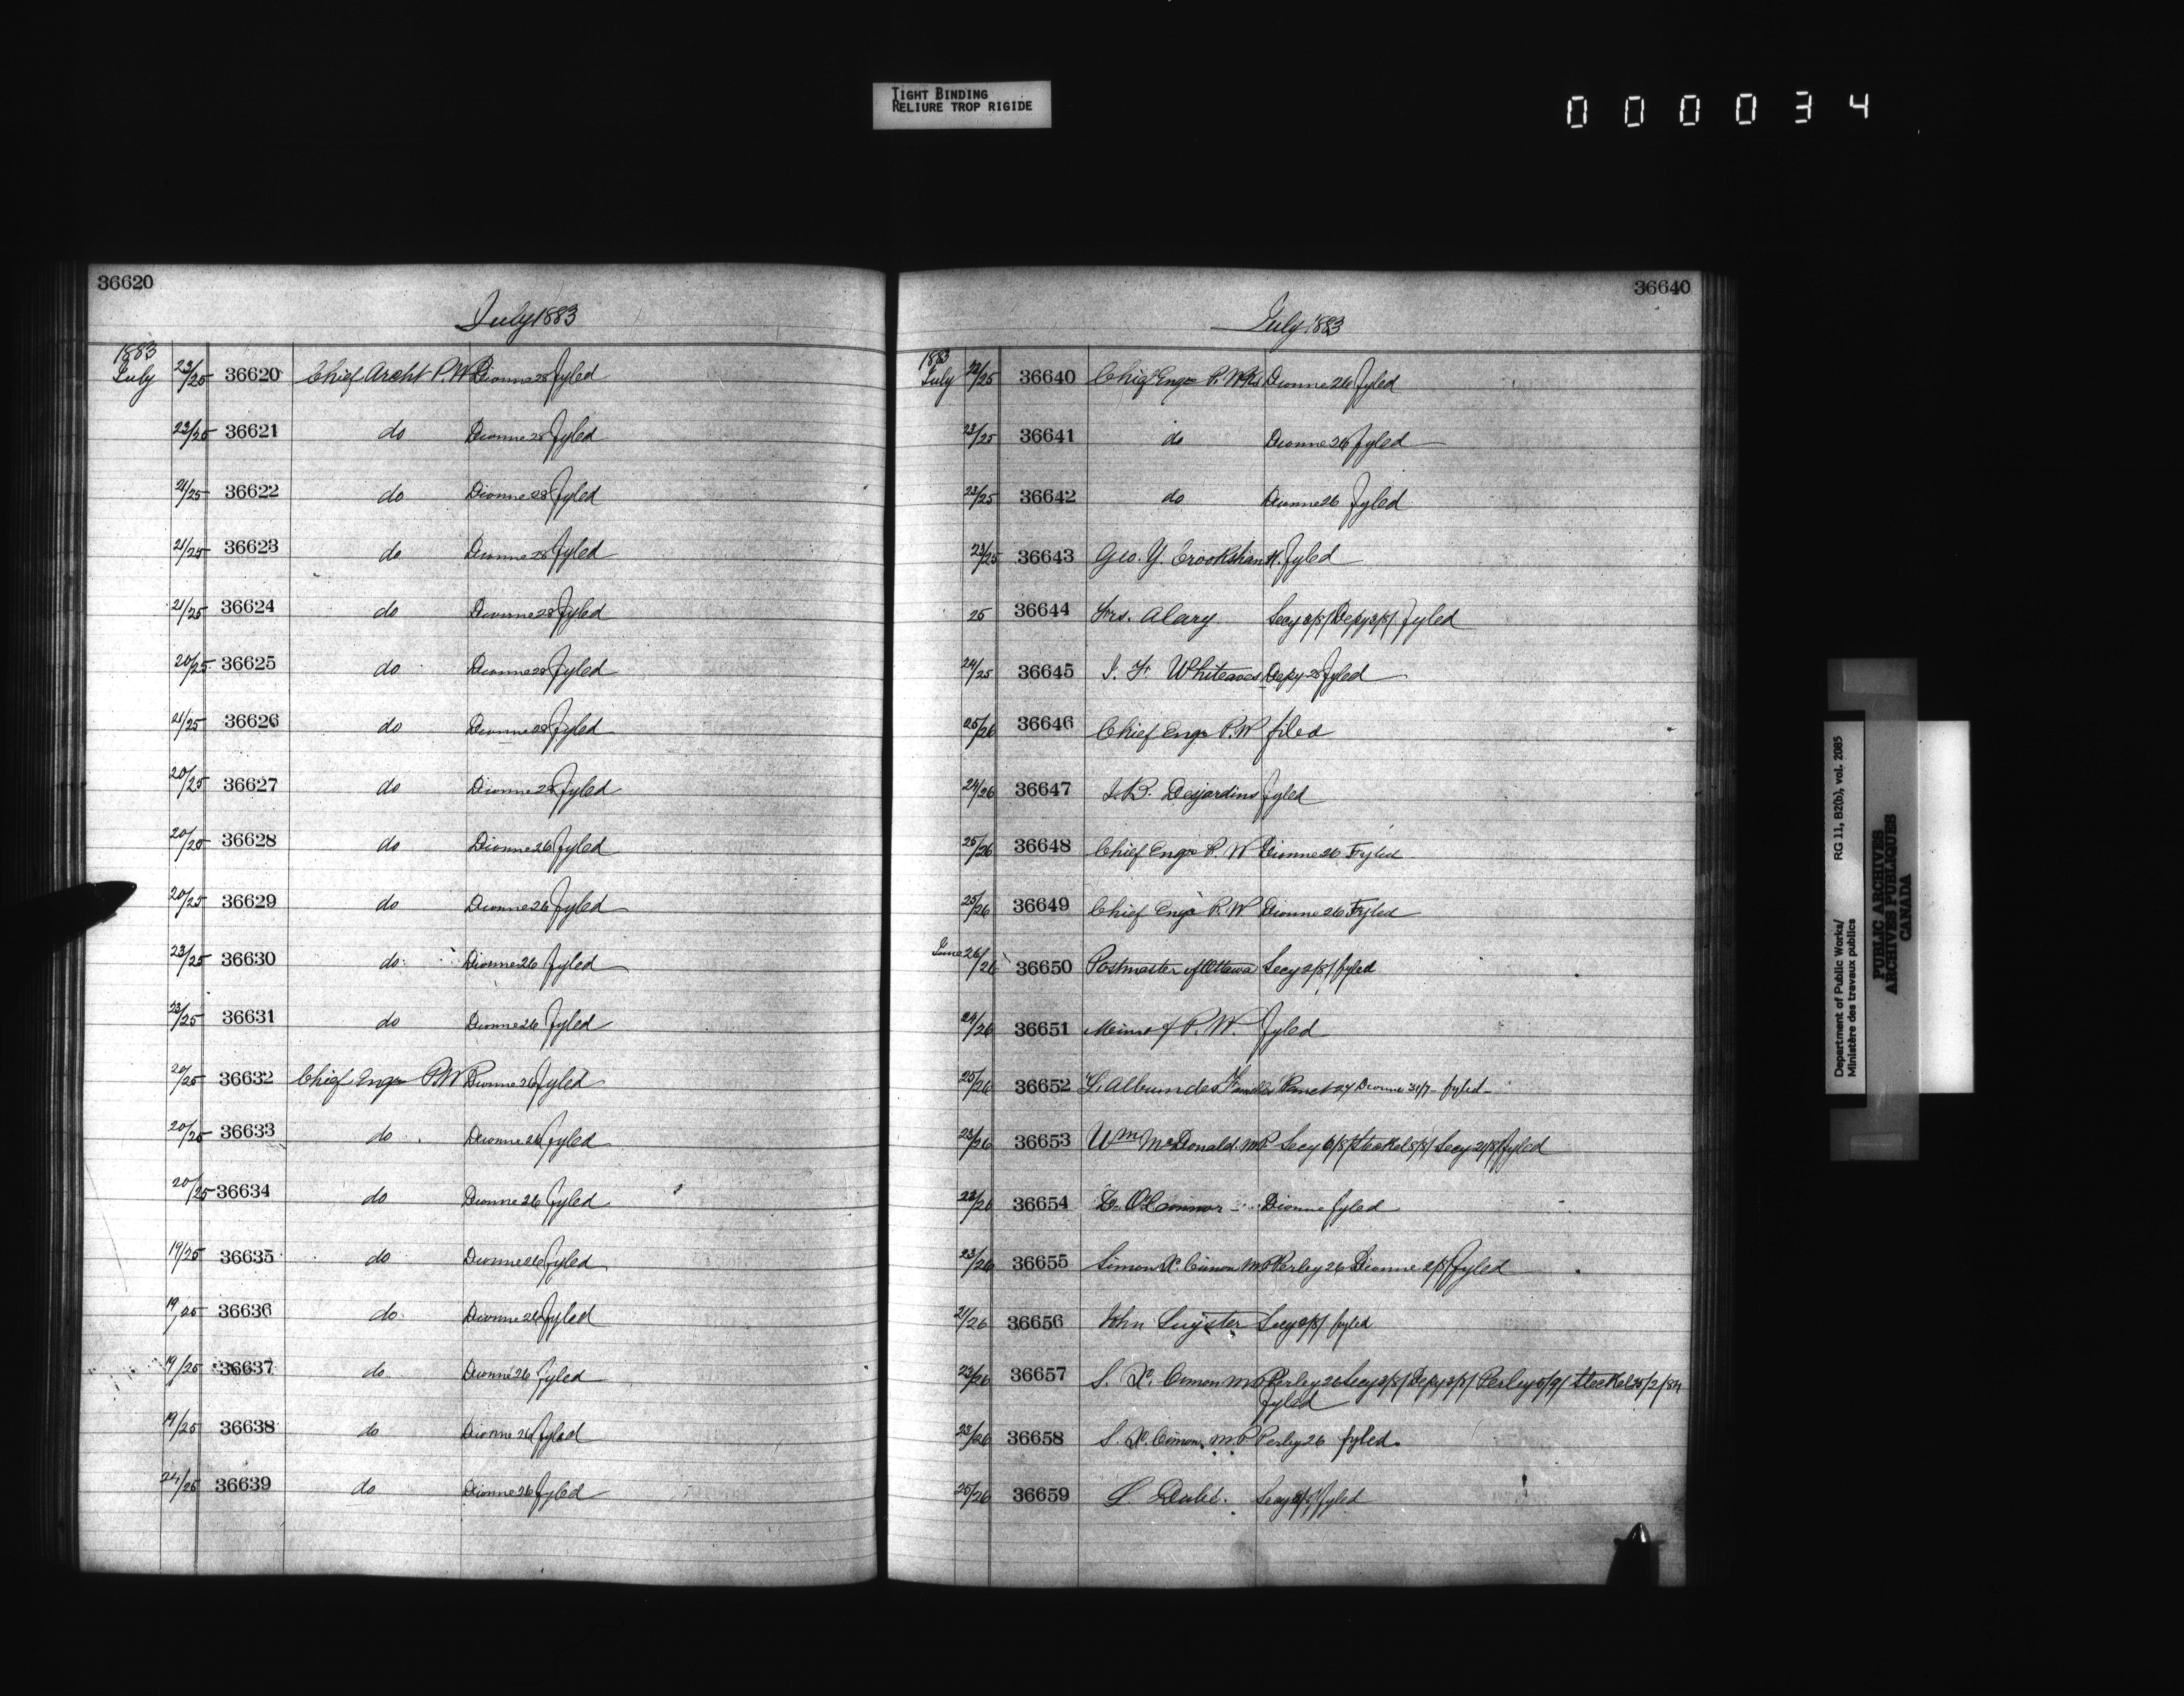 TIGHT BINDING
RELIURE TROP RIGIDE
000034
36620
July 1883
1883
July 23/25 36620 Chief Archt P.W Dionne 28 fyled
23/25 36621 do Dionne 28 fyled
21/25 36622 do Dionne 28 fyled
21/25 36623 do Dionne 28 fyled
21/25 36624 do Dionne 28 fyled
20/25 36625 do Dionne 28 fyled
21/25 36626 do Dionne 28 fyled
20/25 36627 do Dionne 28 fyled
20/25 36628 do Dionne 26 fyled
20/25 36629 do Dionne 26 fyled
23/25 36630 do Dionne 26 fyled
23/25 36631 do Dionne 26 fyled
20/25 36632 Chief Engr P.W Dionne 26 fyled
20/25 36633 do Dionne 26 fyled
20/25 36634 do Dionne 26 fyled
19/25 36635 do Dionne 26 fyled
19/25 36636 do Dionne 26 fyled
19/25 36637 do Dionne 26 fyled
19/25 36638 do Dionne 26 fyled
24/25 36639 do Dionne 26 fyled
36640
July 1883
1883
July 23/25 36640 Chief Engr P. Wks Dionne 26 fyled
23/25 36641 do Dionne 26 fyled
23/25 36642 do Dionne 26 fyled
23/25 36643 Geo. Y. Crookshank. fyled
25 36644 Frs. Alary Secy 2/8/ Depy 3/8/ fyled
24/25 36645 J. F. Whiteaves Depy 28 fyled
25/26 36646 Chief Engr P.W filed
24/26 36647 J.B. Desjardins fyled
25/26 36648 Chief Engr P. W Dionne 26 Fyled
25/26 36649 Chief Engr P. W Dionne 26 Fyled
June 26/26 36650 Postmaster of Ottawa Secy 2/8/ fyled
24/26 36651 Minr of P. W. fyled
25/26 36652 L'Album des Familles Dionne 31/7 - fyled -
23/26 36653 Wm McDonald. MP Secy 6/8/ Steckel 8/8/ Secy 21/8/ fyled
23/26 36654 D. O'Connor Dionne fyled
23/26 36655 Simon X. Cimon MP Perley 26 Dionne 2/8/ fyled
21/26 36656 John Secy 2/8/ fyled
23/26 36657 S. X. Cimon MP Perley 26 Secy 2/8/ Depy 3/8/ Perley 5/9/ Steckel 25/2/84
fyled
23/26 36658 S. X. Cimon. M.P Perley 26 fyled.
25/26 36659 L. Dubé. Secy fyled
Department of Public Works/ RG 11, B2(b), vol. 2085
Ministère des travaux publics
PUBLIC ARCHIVES
ARCHIVES PUBLIQUES
CANADA